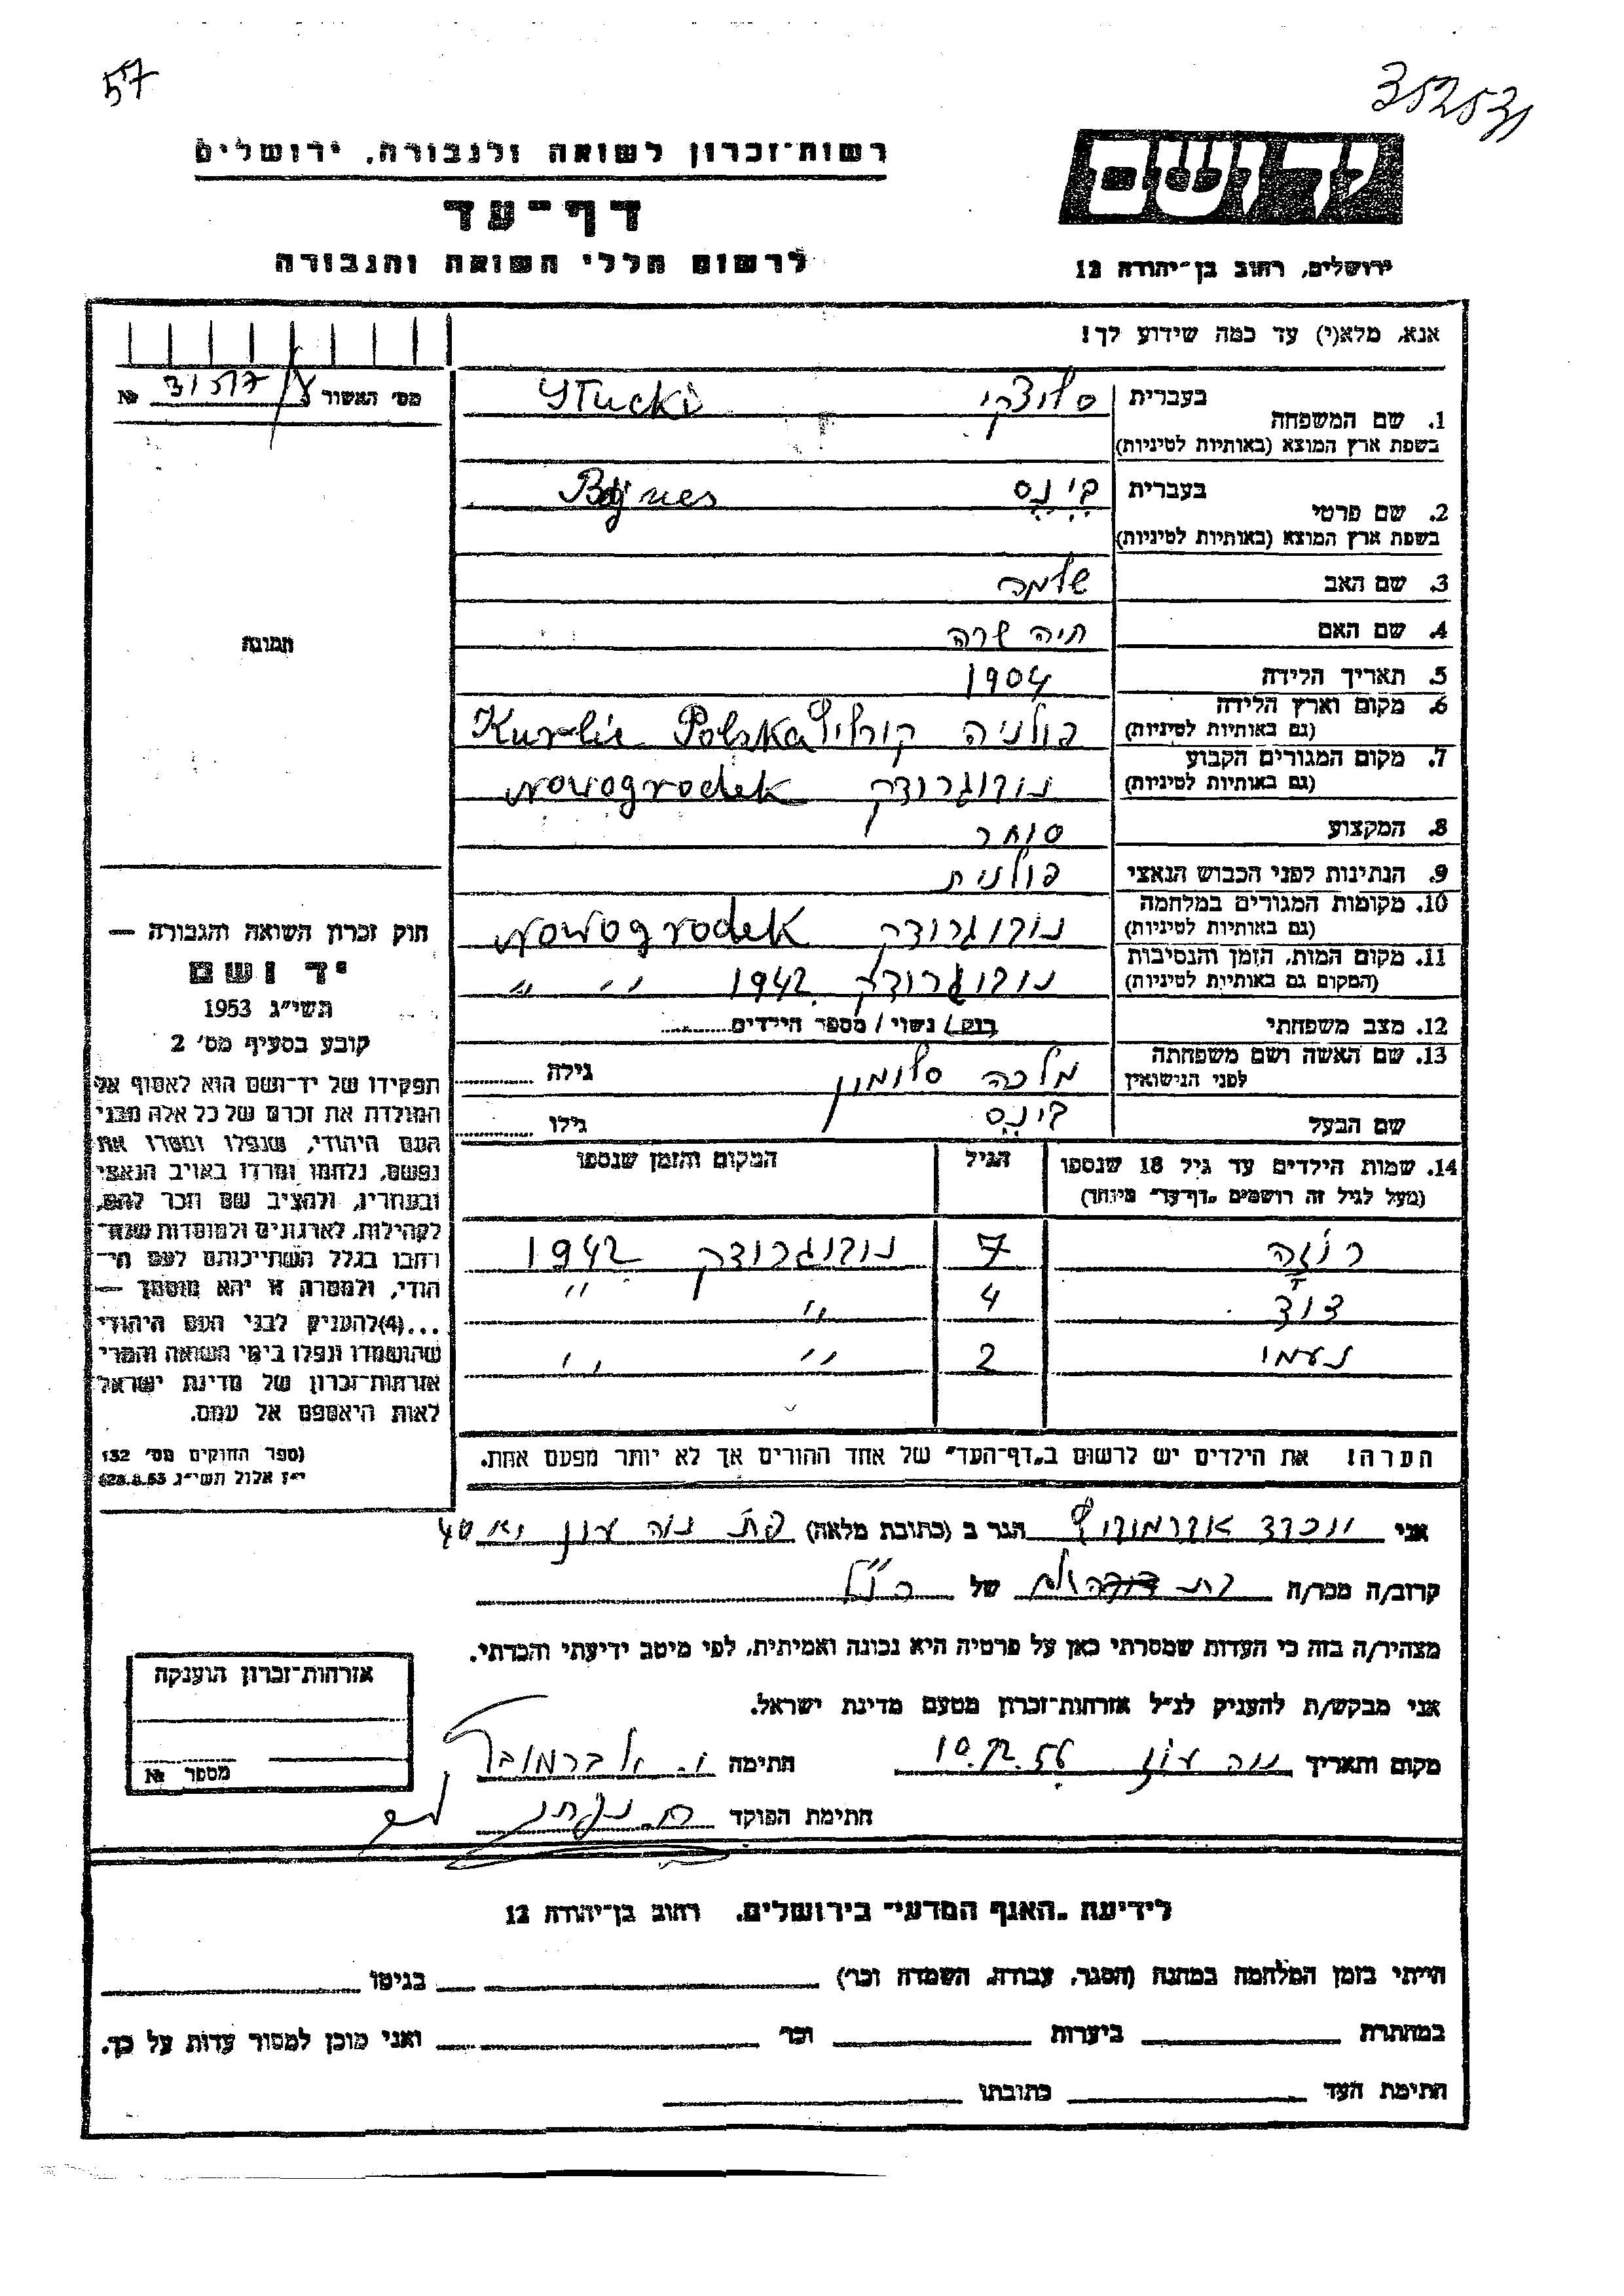 57
352531
רשות־זכרון לשואה ולגבורה, ירושלים
דף־עד
לרשום חללי השואה והגבורה
יד ושם
ירושלים, רחוב בן־יהודה 12
אנא, מלא(י) עד כמה שידוע לך!
מס׳ האשור №
1. שם המשפחה בעברית סלוצקי Slucki
בשפת ארץ המוצא (באותיות לטיניות)
2. שם פרטי בעברית בינס Bejnes
בשפת ארץ המוצא (באותיות לטיניות)
3. שם האב שלמה
4. שם האם חיה שרה
5. תאריך הלידה 1904
6. מקום וארץ הלידה פולניה Polska
(גם באותיות לטיניות)
7. מקום המגורים הקבוע נובוגרודק Nowogrodek
(גם באותיות לטיניות)
8. המקצוע סוחר
9. הנתינות לפני הכבוש הנאצי פולנית
10. מקומות המגורים במלחמה נובוגרודק Nowogrodek
(גם באותיות לטיניות)
11. מקום המות, הזמן והנסיבות נובוגרודק 1942 " "
(המקום גם באותיות לטיניות)
12. מצב משפחתי רווק / נשוי / מספר הילדים
13. שם האשה ושם משפחתה מלכה סלומון גילה
לפני הנישואין
שם הבעל בינס גילו
14. שמות הילדים עד גיל 18 שנספו הגיל המקום והזמן שנספו
(מעל לגיל זה רושמים „דף־עד״ מיוחד)
רוזה 7 נובוגרודק 1942
דוד 4 " "
נעמי 2 " "
הערה! את הילדים יש לרשום ב„דף־העד״ של אחד ההורים אך לא יותר מפעם אחת.
תמונה
חוק זכרון השואה והגבורה —
יד ושם
תשי״ג 1953
קובע בסעיף מס׳ 2
תפקידו של יד־ושם הוא לאסוף אל
המולדת את זכרם של כל אלה מבני
העם היהודי, שנפלו ומסרו את
נפשם, נלחמו ומרדו באויב הנאצי
ובעוזריו, ולהציב שם וזכר להם,
לקהילות, לארגונים ולמוסדות שנח־
רבו בגלל השתייכותם לעם הי־
הודי, ולמטרה זו יהא מוסמך —
...(4) להעניק לבני העם היהודי
שהושמדו ונפלו בימי השואה והמרי
אזרחות־זכרון של מדינת ישראל
לאות היאספם אל עמם.
(ספר החוקים מס׳ 132
י״ז אלול תשי״ג 28.8.53)
אני הגר ב (כתובת מלאה)
קרוב/ה מכר/ה של הנ״ל
מצהיר/ה בזה כי העדות שמסרתי כאן על פרטיה היא נכונה ואמיתית, לפי מיטב ידיעתי והכרתי.
אני מבקש/ת להעניק לנ״ל אזרחות־זכרון מטעם מדינת ישראל.
מקום ותאריך חתימה
חתימת הפוקד
אזרחות־זכרון הוענקה
מספר №
לידיעת „האגף המדעי״ בירושלים. רחוב בן־יהודה 12
הייתי בזמן המלחמה במחנה (הסגר, עבודה, השמדה וכו׳) בגיטו
במחתרת ביערות וכו׳ ואני מוכן למסור עדות על כך.
חתימת העד כתובתו